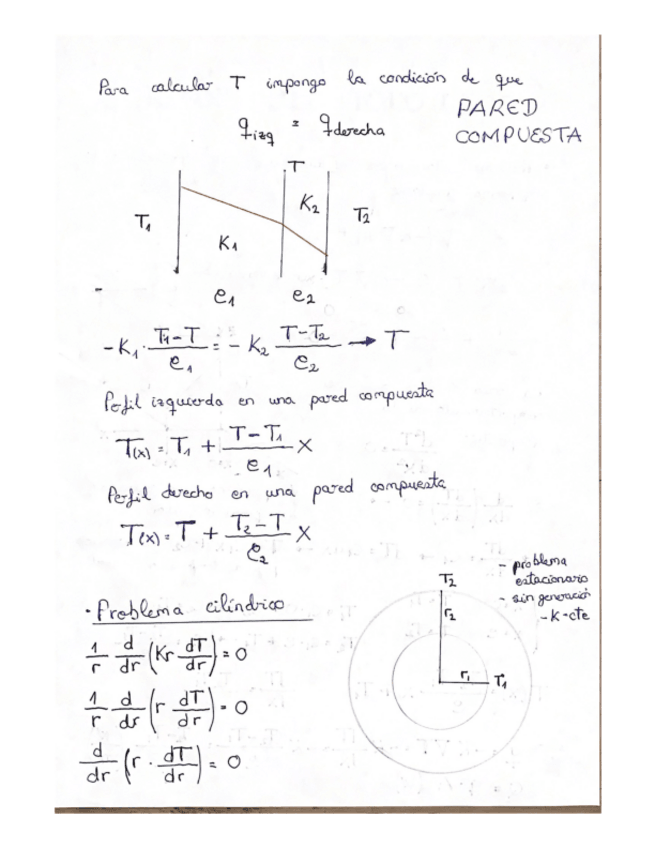 Para calcular T impongo la condición de que
PARED
COMPUESTA
q izq = q derecha
T
K₂
T₁
T₂
K₁
e₁ e₂
-K₁ · (T₁-T)/e₁ = - K₂ (T-T₂)/e₂ → T
Perfil izquierda en una pared compuesta
T(x) = T₁ + (T-T₁)/e₁ x
Perfil derecho en una pared compuesta
T(x) = T + (T₂-T)/e₂ x
- problema
estacionario
- sin generación
- K-cte
T₂
r₂
r₁ T₁
· Problema cilíndrico
1/r d/dr (Kr dT/dr) = 0
1/r d/dr (r dT/dr) = 0
d/dr (r · dT/dr) = 0